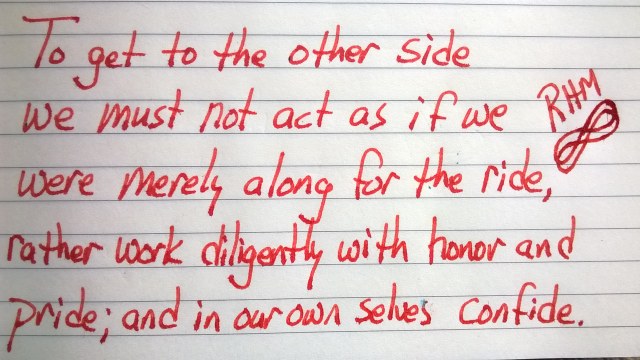 To get to the other side
we must not act as if we
RHM
were merely along for the ride,
rather work diligently with honor and
pride; and in our own selves confide.